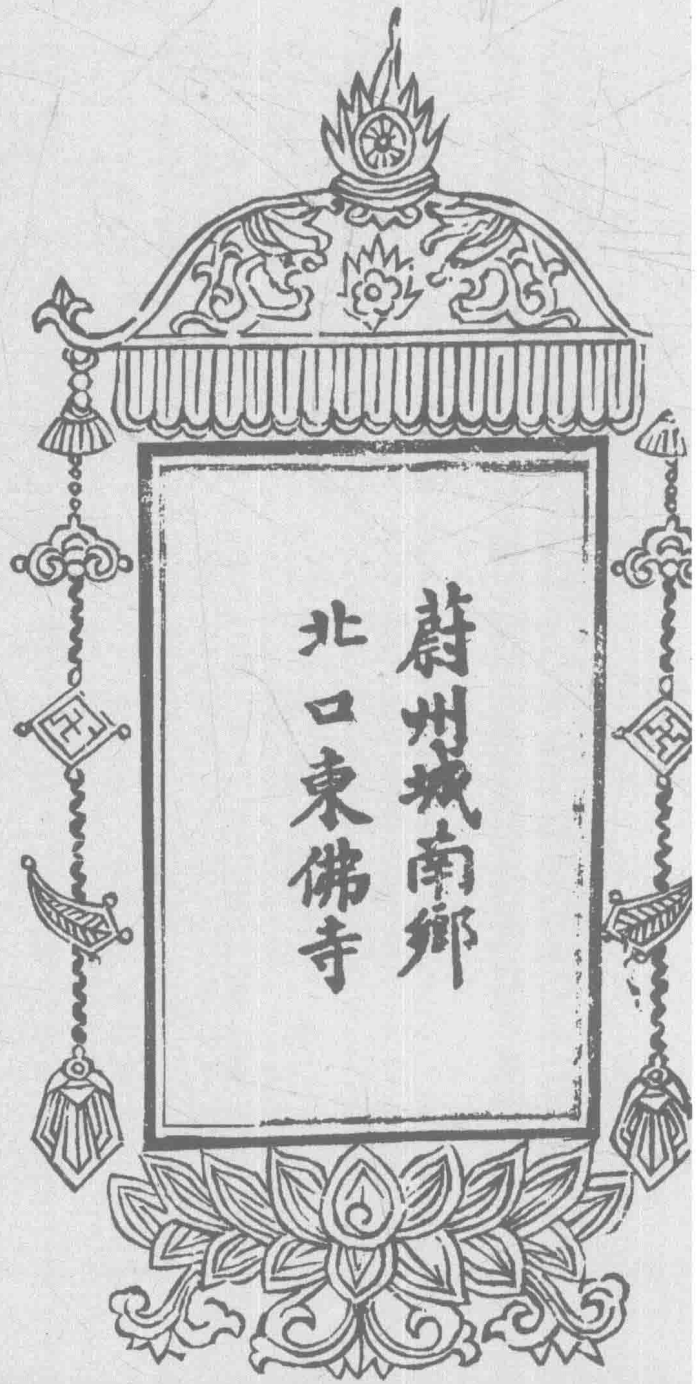 蔚州城南鄉
北口東佛寺